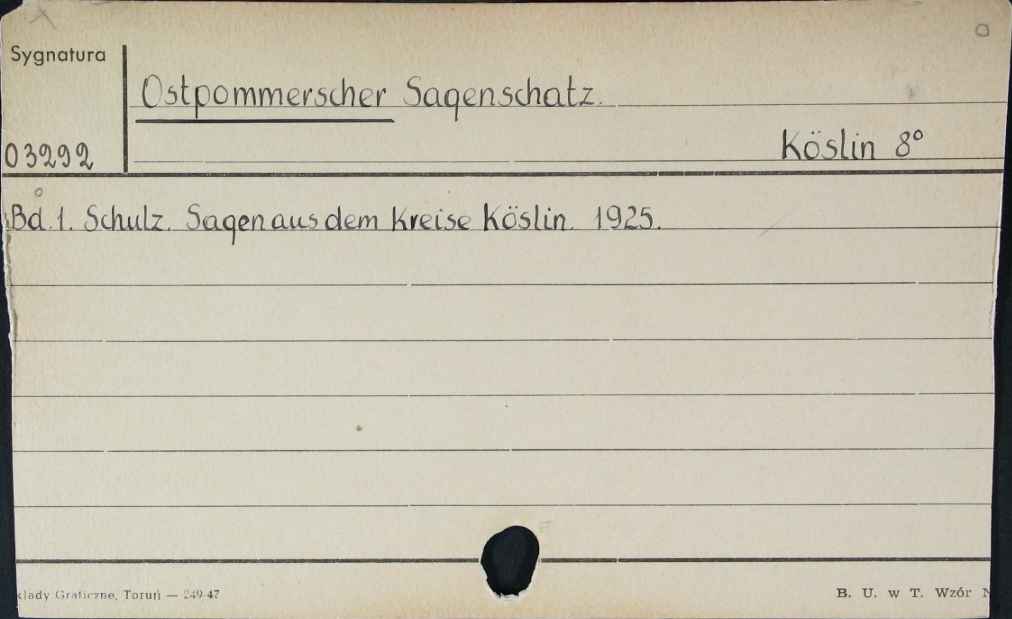 Sygnatura
Ostpommerscher Sagenschatz.
03292
Köslin 8°
Bd. 1. Schulz. Sagen aus dem Kreise Köslin. 1925.
kłady Graficzne, Toruń — 249-47
B. U. w T. Wzór N